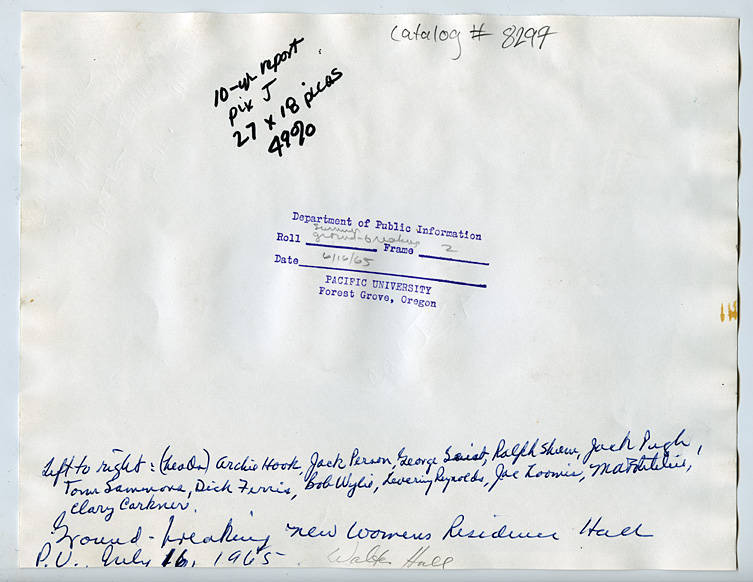 Catalog # 8297
10-yr report
pix J
27 x 18 picas
49%
Department of Public Information
Summer
Roll ground-breaking Frame 2
Date 6/16/65
PACIFIC UNIVERSITY
Forest Grove, Oregon
Left to right: (heads) Archie Hook, Jack Person, George Ralph Shaw, Jack Pugh,
Tom Sammons, Dick Ferris, Bob Wylie, Levering Reynolds, Joe Loomis,
Clary Carkner.
Ground-breaking new Womens Residence Hall
P.U. July 16, 1965 Walter Hall